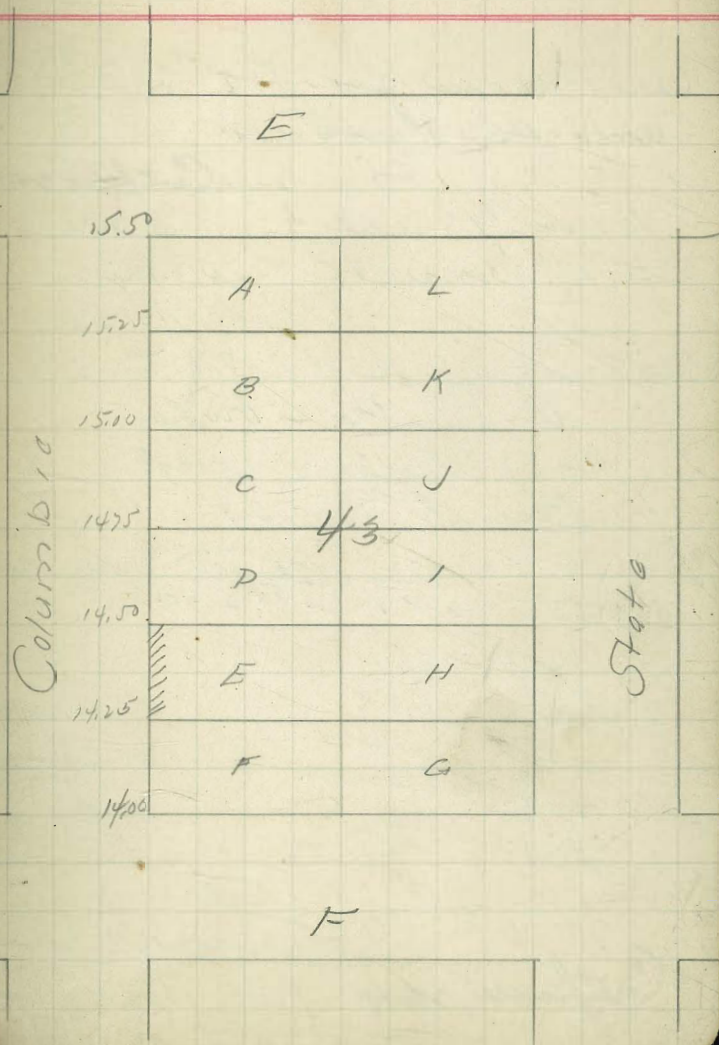 E
15.50
A L
15.25
B K
15.00
C J
14.75
43
D I
14.50
E H
14.25
F G
14.00
F
Columbia
State